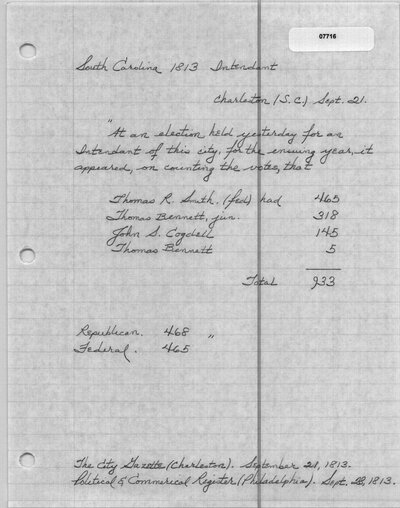 07716
South Carolina 1813 Intendant
Charleston (S.C.) Sept. 21.
"At an election held yesterday for an
Intendant of this city, for the ensuing year, it
appeared, on counting the votes, that
Thomas R. Smith. (fed) had 465
Thomas Bennett, jun. 318
John S. Cogdell 145
Thomas Bennett 5
Total 933
Republican. 468 "
Federal. 465
The City Gazette (Charleston). September 21, 1813.
Political & Commerical Register (Philadelphia). Sept. 28, 1813.